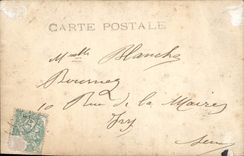 CARTE POSTALE
Mselle Blanche
Bournez
10 Rue de la Mairie
Ivry
Seine